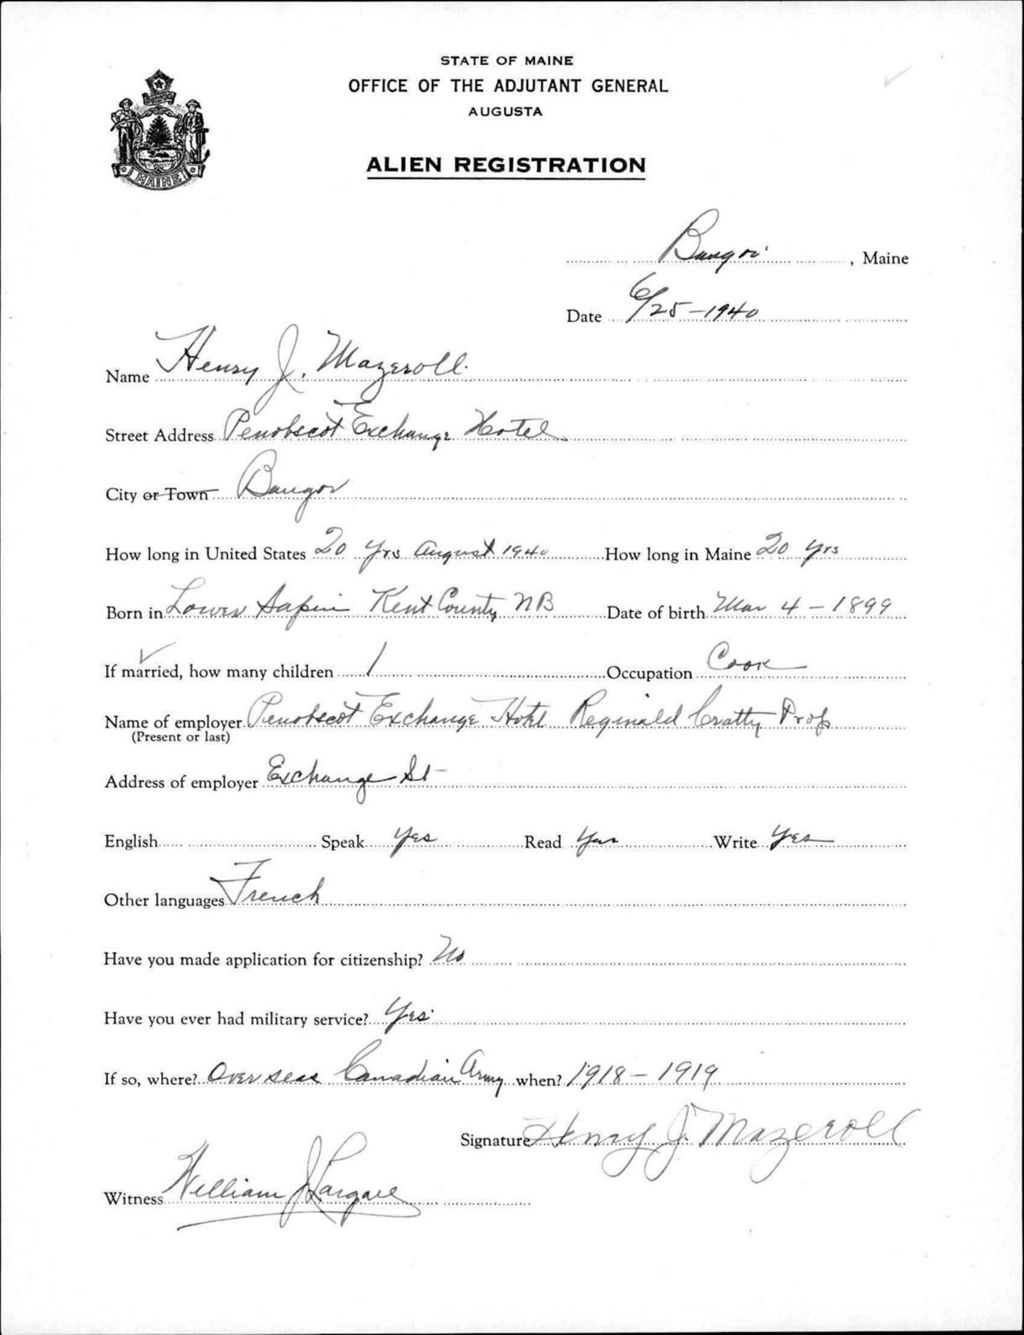 STATE OF MAINE
OFFICE OF THE ADJUTANT GENERAL
AUGUSTA
ALIEN REGISTRATION
MAINE
Bangor, Maine
Date 6/25-1940
Name Henry J. Mazeroll.
Street Address Penobscot Exchange Hotel
City or Town Bangor
How long in United States 20 yrs August 1940 How long in Maine 20 yrs
Born in Lower Sapin Kent County NB Date of birth Mar 4 - 1899
If married, how many children 1 Occupation Cook
Name of employer Penobscot Exchange Hotel Reginald Cratty Prop
(Present or last)
Address of employer Exchange St
English Speak Yes Read Yes Write Yes
Other languages French
Have you made application for citizenship? No
Have you ever had military service? Yes
If so, where? Overseas Canadian Army when? 1918 - 1919
Signature Henry J. Mazeroll
Witness William J